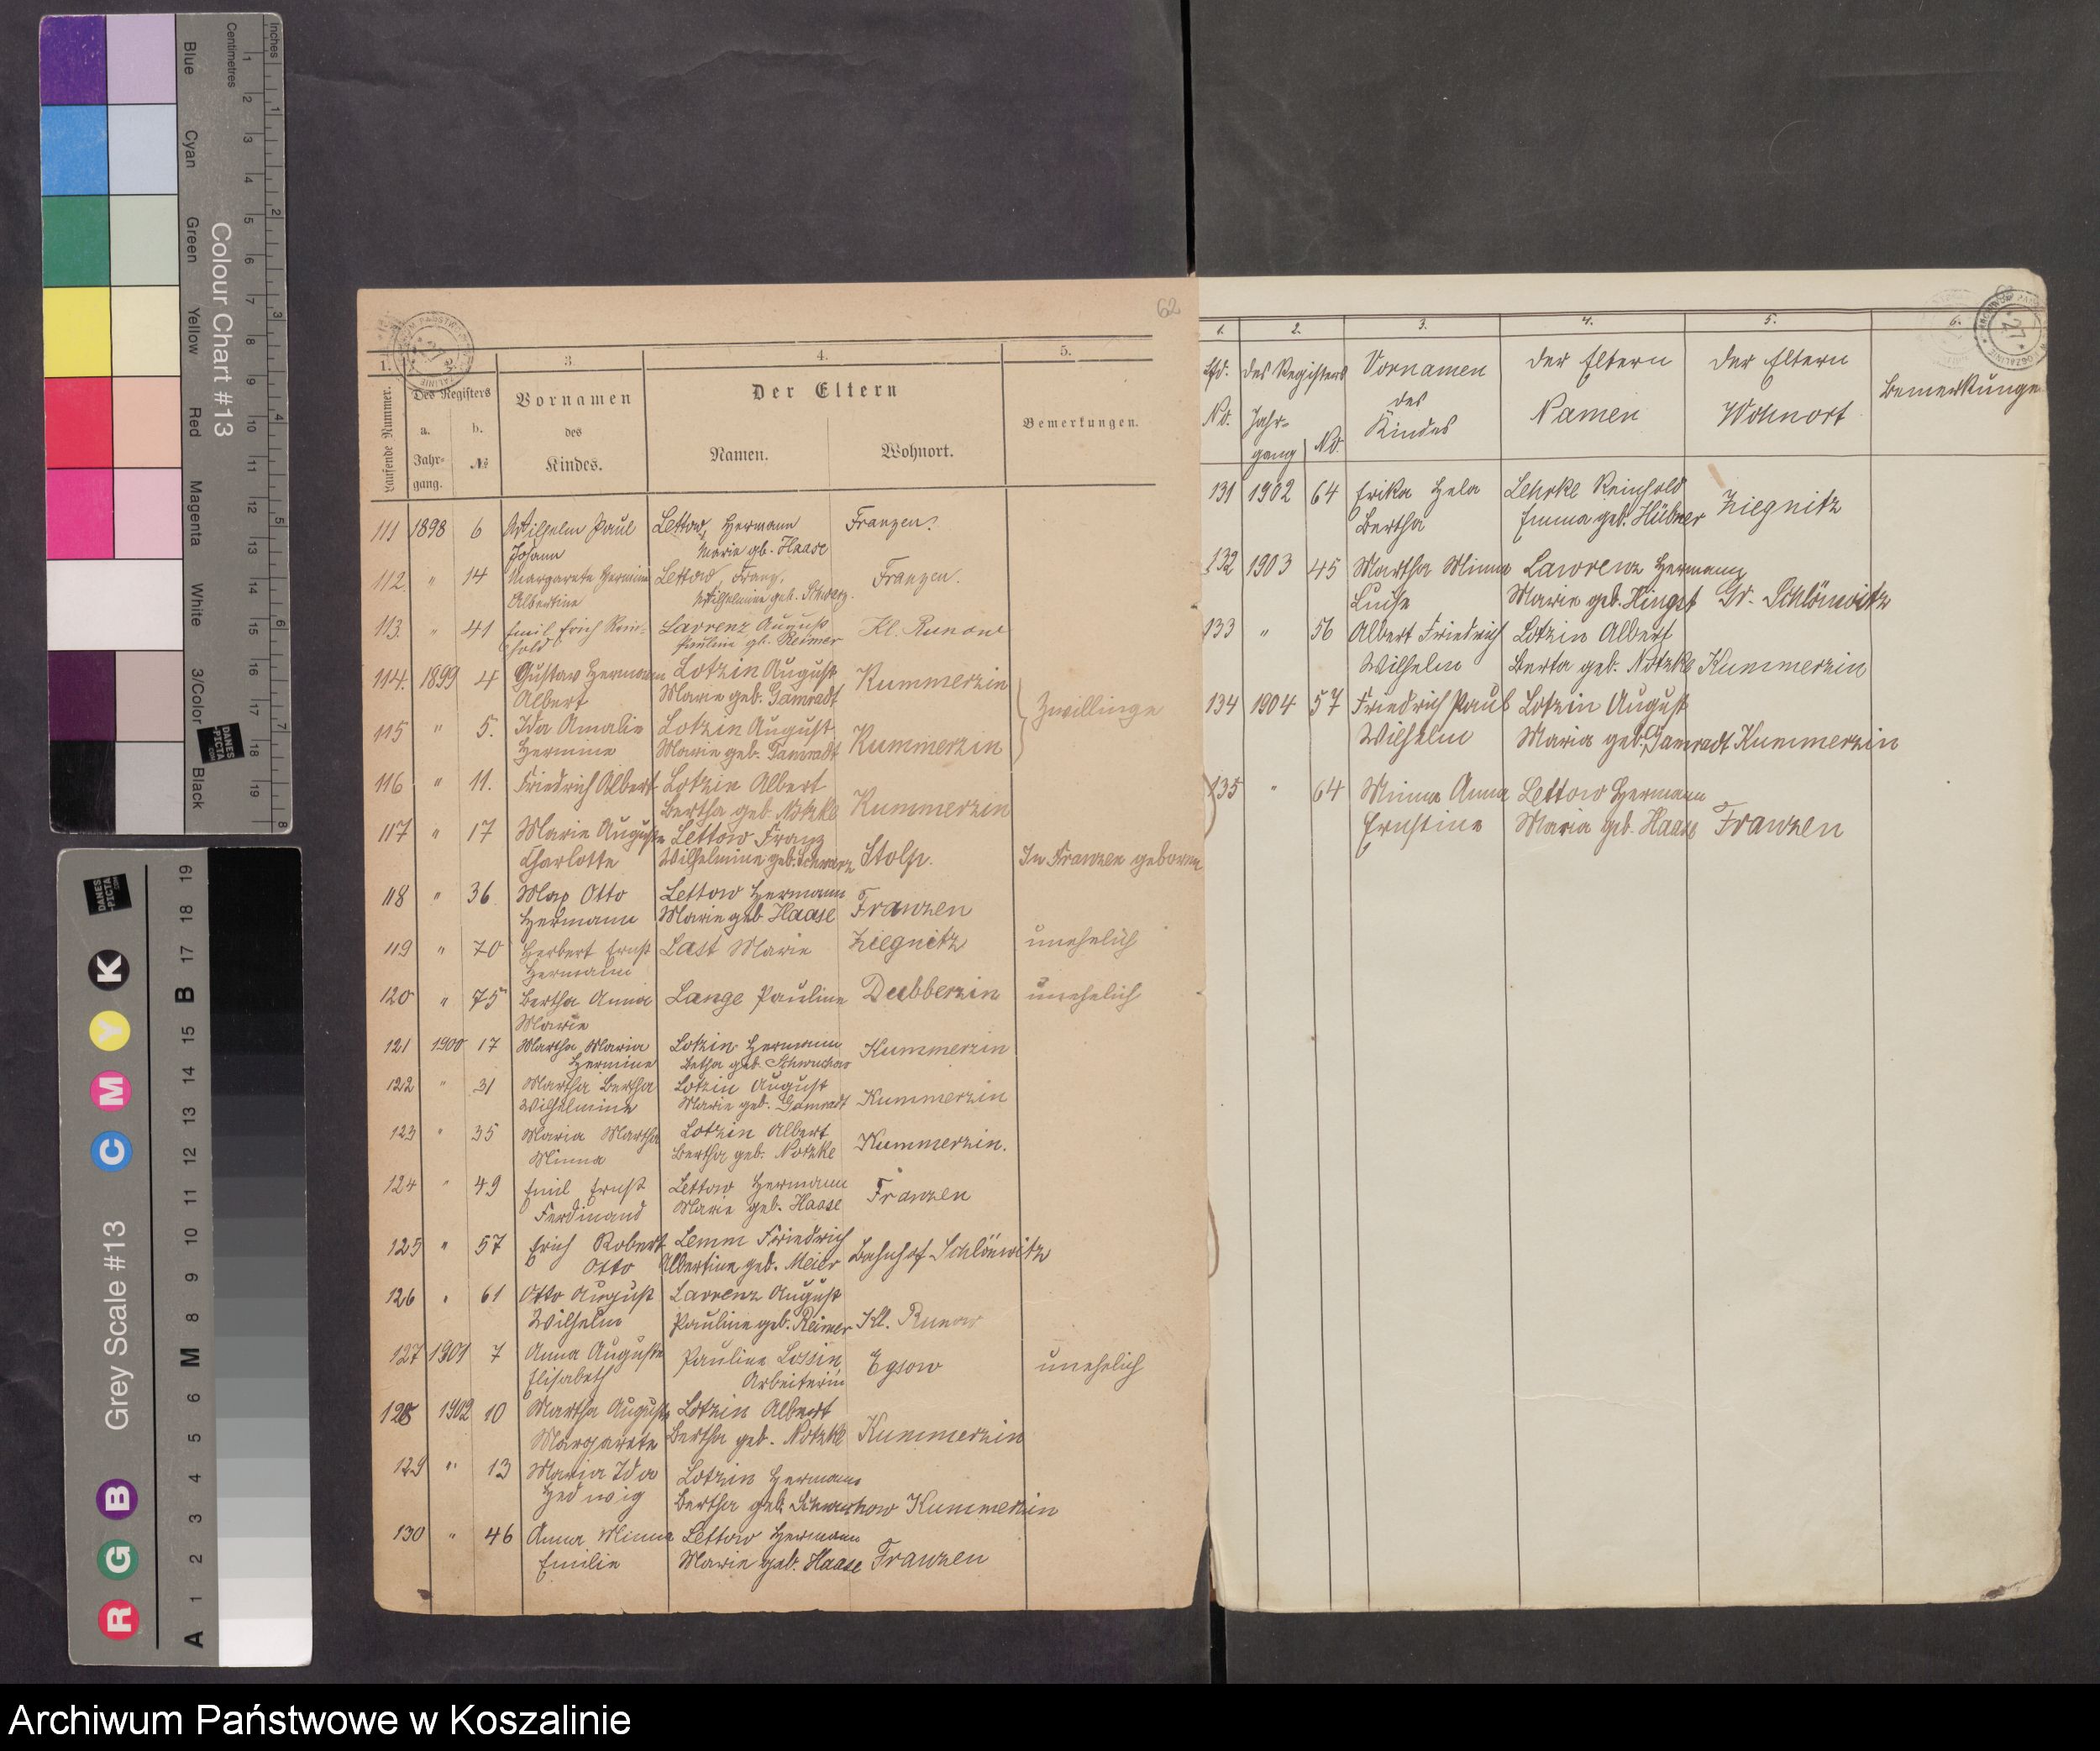 Inches
Centimetres
Colour Chart #13
Blue
Cyan
Green
Yellow
Red
Magenta
White
3/Color
Black
DANES
-PICTA
.COM
Grey Scale #13
R G B
C M Y K
A 1 2 3 4 5 6 M 8 9 10 11 12 13 14 15 B 17 18 19
62
1. 3. 4. 5.
Laufende Nummer.
Des Registers
a. b.
Jahr-
gang.
№
Vornamen
des
Kindes.
Der Eltern
Namen. Wohnort.
Bemerkungen.
111 1898 6 Wilhelm Paul Lettow, Hermann Franzen.
Johann Marie gb. Haase
112 " 14 Margarete Hermine Lettow, Franz, Franzen.
Albertine Wilhelmine geb. Schwarz.
113. " 41 Emil Erich Rein- Lavrenz August Kl. Runow
hold Pauline gb. Reimer
114. 1899 4 Gustav Hermann Lotzin August Kummerzin
Albert Marie geb. Gamradt
Zwillinge
115 " 5. Ida Amalie Lotzin August Kummerzin
Hermine Marie geb. Gamradt
116 " 11. Friedrich Albert Lotzin Albert
Bertha geb. Notzke Kummerzin
117 " 17 Marie Auguste Lettow Franz
Charlotte Wilhelmine geb. Schwarz Stolp. In Franzen geboren
118 " 36 Max Otto Lettow Hermann
Hermann Marie geb. Haase Franzen
119 " 70 Herbert Ernst Last Marie Ziegnitz unehelich
Hermann
120 " 75 Bertha Anna Lange Pauline Dubberzin unehelich
Marie
121 1900 17 Martha Maria Lotzin Hermann Kummerzin
Hermine Betha geb.
122 " 31 Martha Bertha Lotzin August
Wilhelmine Marie geb. Gamradt Kummerzin
123 " 35 Maria Martha Lotzin Albert
Minna Bertha geb. Notzke Kummerzin.
124 " 49 Emil Ernst Lettow Hermann
Ferdinand Marie geb. Haase Franzen
125 " 57 Erich Robert Lemm Friedrich
Otto Albertine geb. Meier Bahnhof Schlönwitz
126 " 61 Otto August Lavrenz August
Wilhelm Pauline geb. Reimer Kl. Runow
127 1901 7 Anna Auguste Pauline Lossin Egsow unehelich
Elisabeth Arbeiterin
128 1902 10 Martha Auguste Lotzin Albert
Margarete Bertha geb. Notzke Kummerzin
129 " 13 Maria Ida Lotzin Hermann
Hedwig Bertha geb. Kummerzin
130 " 46 Anna Minna Lettow Hermann
Emilie Marie geb. Haase Franzen
1. 2. 3. 4. 5. 6.
Lfd. des Registers Vornamen der Eltern der Eltern Bemerkunge
No. Jahr- No. des Namen Wohnort
gang Kindes
131 1902 64 Erika Hela Lehrke Reinhold
Bertha Emma geb. Hübner Ziegnitz
132 1903 45 Martha Minna Lawrenz Hermann
Luise Marie geb. Hingst Gr. Schlönwitz
133 " 56 Albert Friedrich Lotzin Albert
Wilhelm Berta geb. Notzke Kummerzin
134 1904 57 Friedrich Paul Lotzin August
Wilhelm Maria geb. Gamradt Kummerzin
135 " 64 Minna Anna Lettow Hermann
Ernstine Maria geb. Haase Franzen
Archiwum Państwowe w Koszalinie